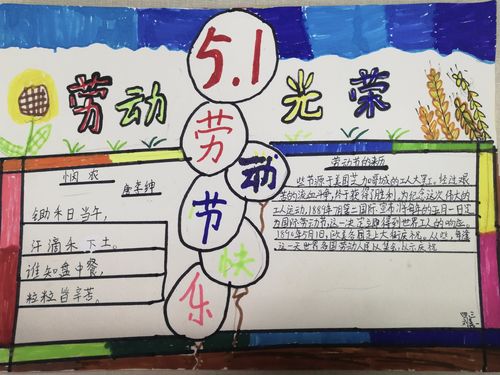 5.1
劳动 光荣
劳
动
节
快
乐
悯农
唐 李绅
锄禾日当午,
汗滴禾下土。
谁知盘中餐,
粒粒皆辛苦。
劳动节的来历
些节源于美国芝加哥城的工人大罢工,经过艰
苦的流血斗争,终于获得了胜利,为纪念这次伟大的
工人运动,1889年的第二国际宣布将每年的五月一日定
为国际劳动节,这一决定立即得到世界工人的响应。
1890年5月1日,欧美各国
上大街庆祝。从此,每逢
这一天世界各国劳动人民
以示庆祝